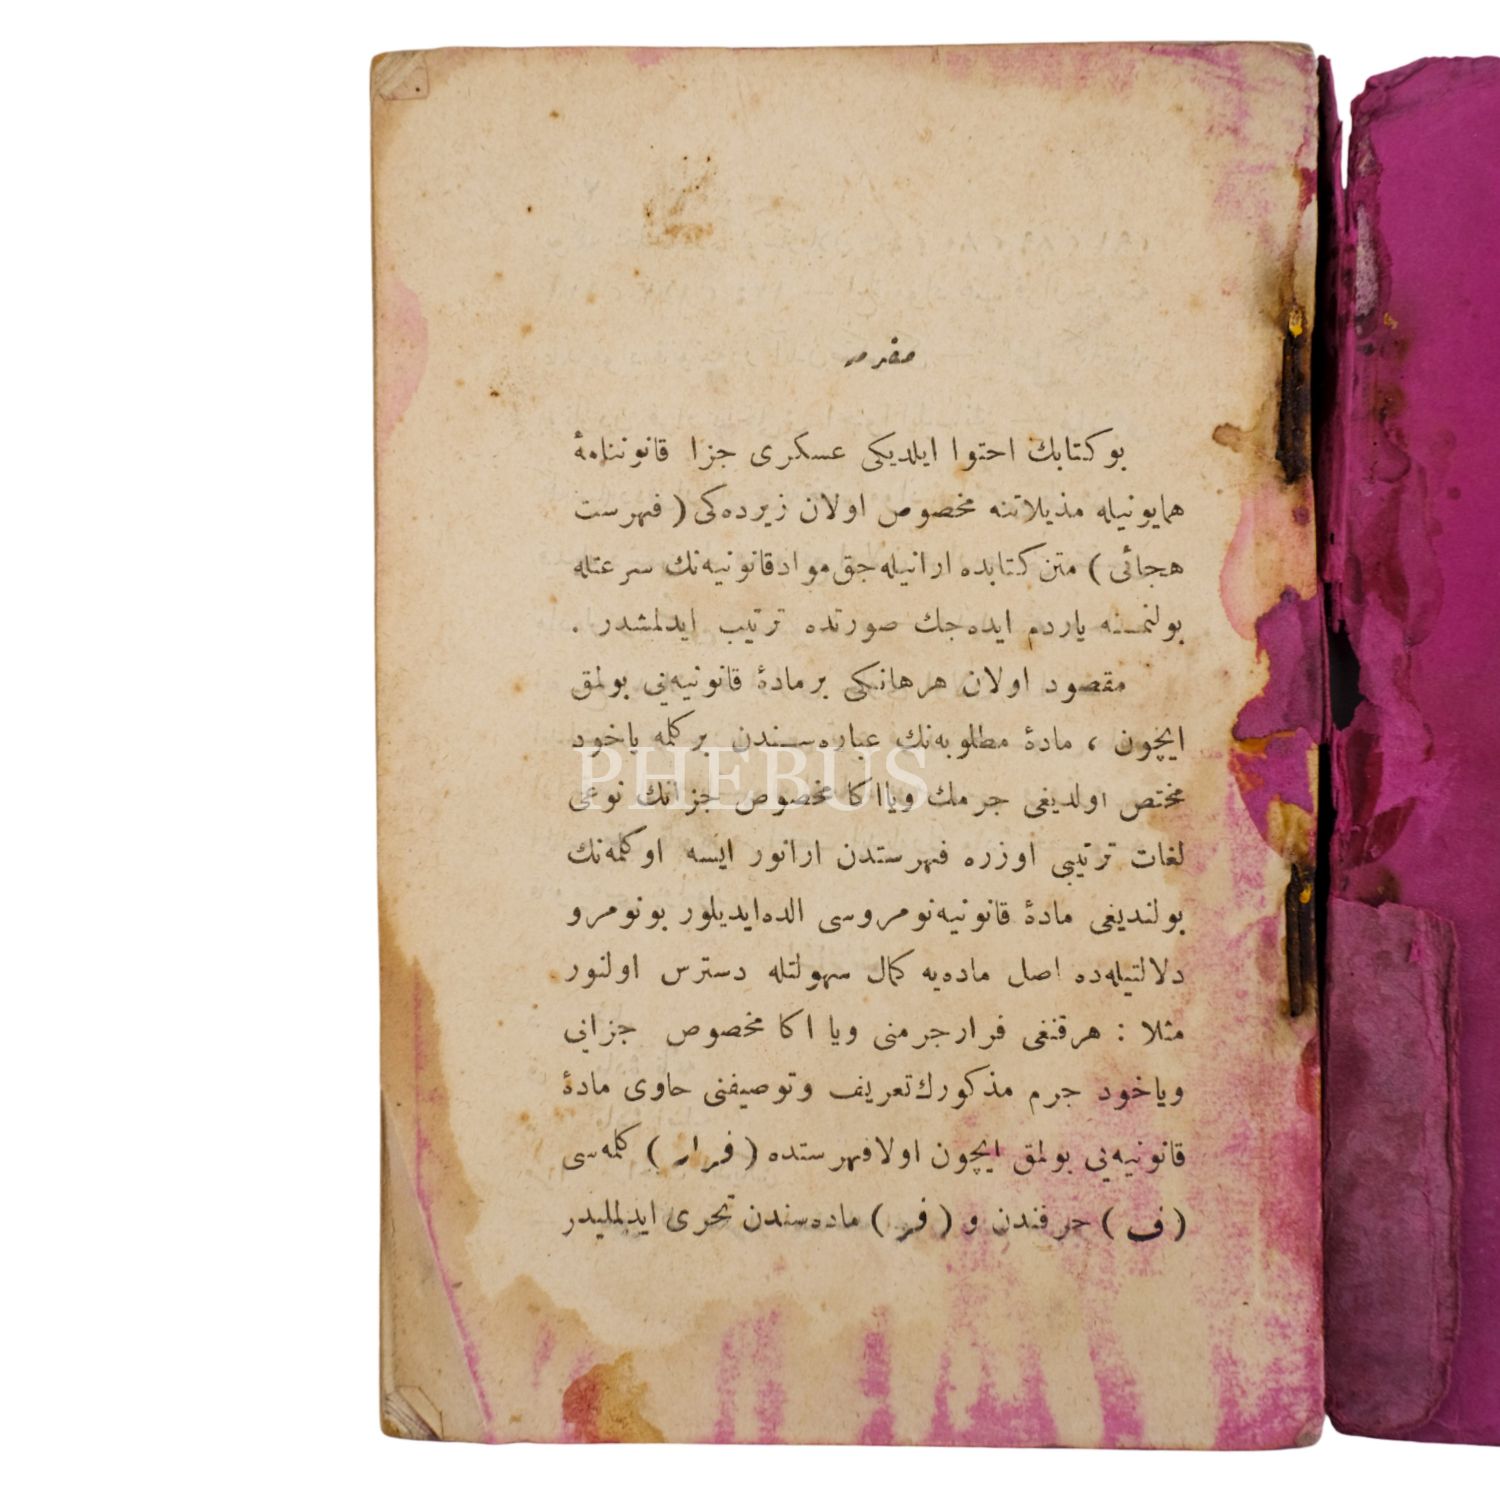 مقدمه
بو كتابك احتوا ايلديكى عسكرى جزا قانوننامۀ
همايونيله مذيلاتنه مخصوص اولان زيرده‌كى ( فهرست
هجائى ) متن كتابده ارانيله‌جق مواد قانونيه‌نك سرعتله
بولنمـسنه ياردم ايده‌جك صورتده ترتيب ايدلمشدر .
مقصود اولان هرهانكى برمادۀ قانونيه‌يى بولمق
ايچون ، مادۀ مطلوبه‌نك عباره‌سـندن بركلمه ياخود
مختص اولديغى جرمك ويا اكا مخصوص جزانك نوعى
لغات ترتيبى اوزره فهرستدن ارانور ايسه اوكلمه‌نك
بولنديغى مادۀ قانونيه‌نومروسى الده‌ايديلور بونومرو
دلالتيله‌ده اصل ماده‌يه كمال سهولتله دسترس اولنور
مثلا : هرقنغى فرارجرمنى ويا اكا مخصوص جزايى
وياخود جرم مذكورك‌تعريف وتوصيفنى حاوى مادۀ
قانونيه‌يى بولمق ايچون اولافهرستده ( فرار ) كلمه‌سى
( ف ) حرفندن و ( فر ) ماده‌سندن تحرى ايدلمليدر
PHEBUS